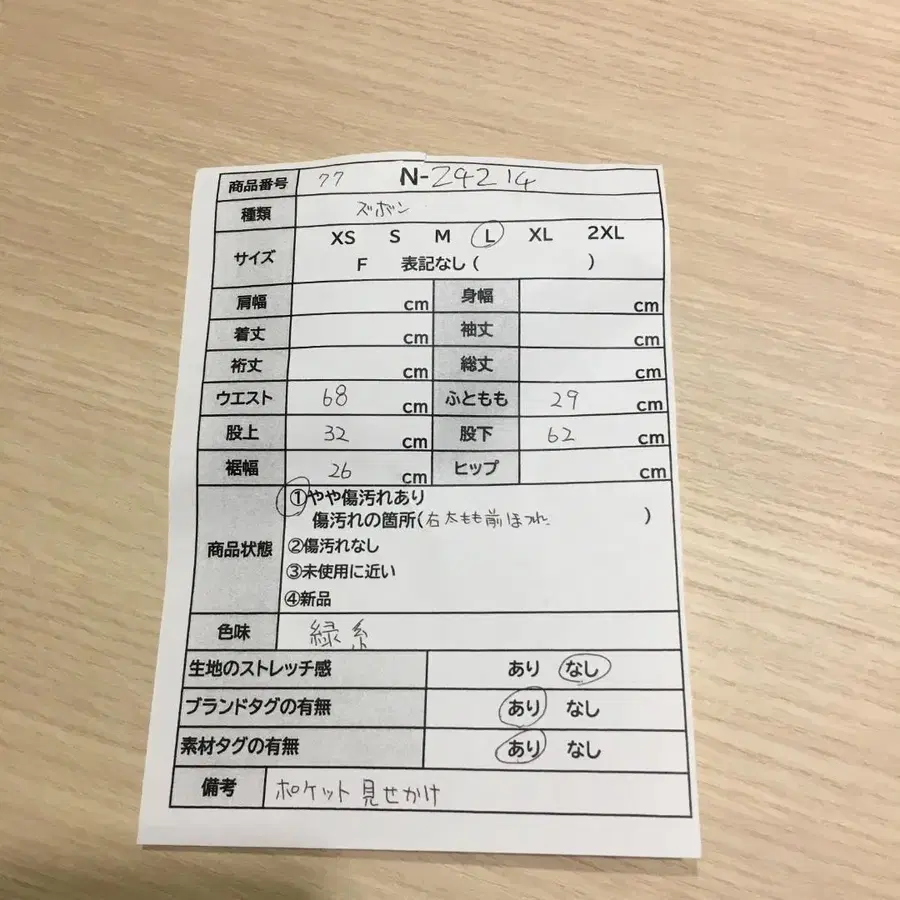 商品番号 77 N-24214
種類 ズボン
サイズ XS S M L XL 2XL
F 表記なし ( )
肩幅 cm 身幅 cm
着丈 cm 袖丈 cm
裄丈 cm 総丈 cm
ウエスト 68 cm ふともも 29 cm
股上 32 cm 股下 62 cm
裾幅 26 cm ヒップ cm
商品状態 ①やや傷汚れあり
傷汚れの箇所(右太もも前ほつれ )
②傷汚れなし
③未使用に近い
④新品
色味 緑系
生地のストレッチ感 あり なし
ブランドタグの有無 あり なし
素材タグの有無 あり なし
備考 ポケット見せかけ